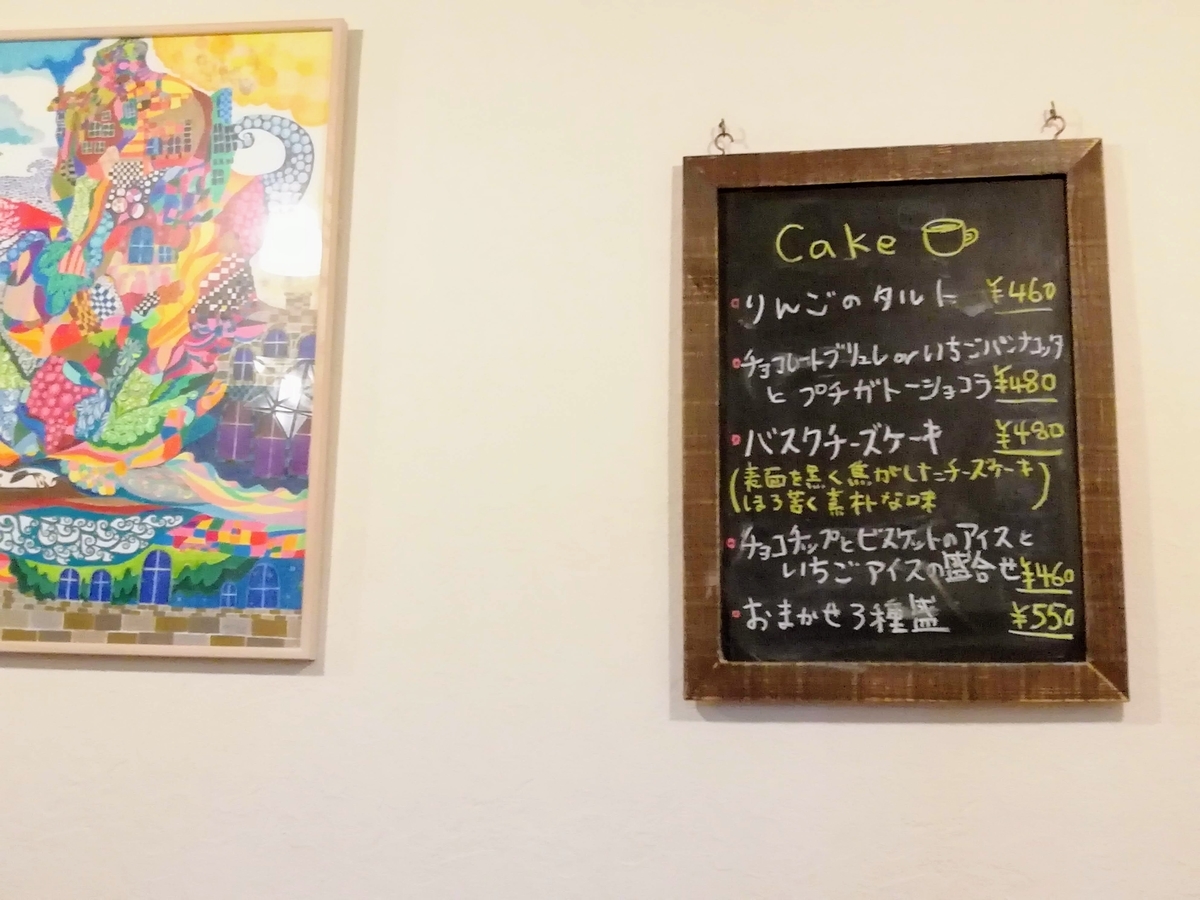 Cake
りんごのタルト ¥460
チョコレートブリュレ or いちごパンナコッタ
と プチガトーショコラ ¥480
バスクチーズケーキ ¥480
(表面を黒く焦がしたチーズケーキ
ほろ苦く素朴な味)
チョコチップとビスケットのアイスと
いちごアイスの盛合せ ¥460
おまかせ3種盛 ¥550